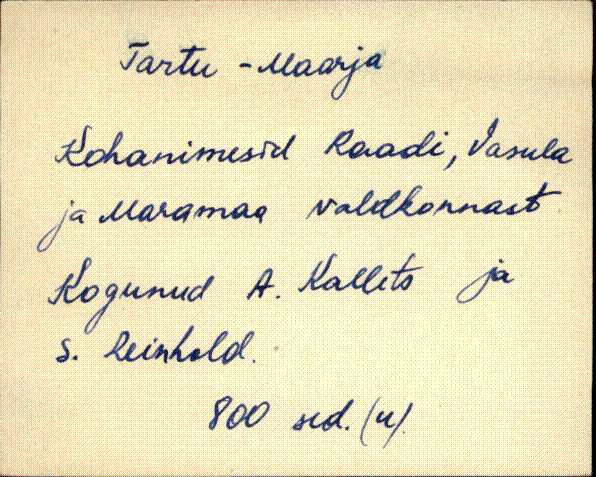 Tartu - Maarja
Kohanimesid Raadi, Vasula
ja Maramaa valdkonnast
Kogunud A. Kallits ja
S. Reinhold.
800 sed. (u)